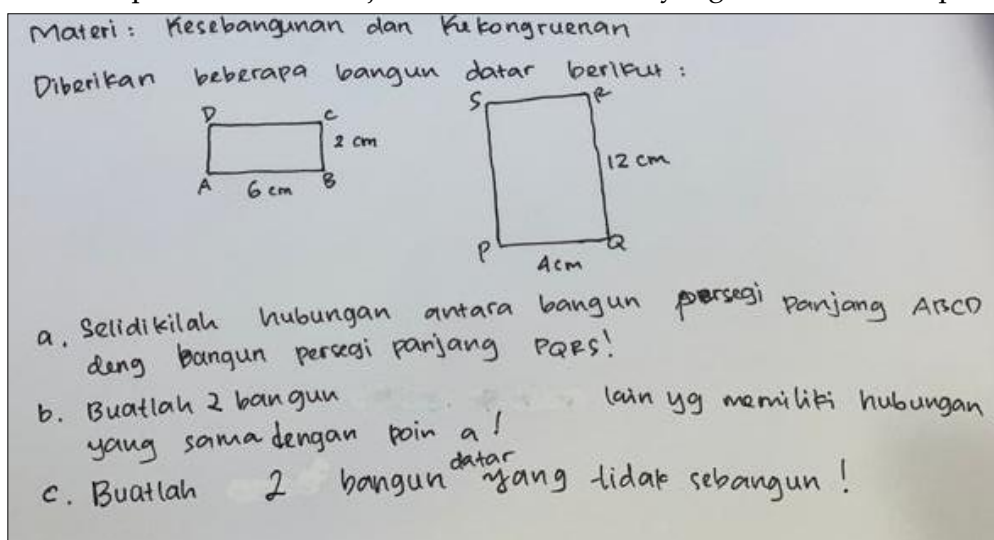 Materi : Kesebangunan dan Kekongruenan
Diberikan beberapa bangun datar berikut :
D C
2 cm
A 6 cm B
S R
12 cm
P Q
4cm
a. Selidikilah hubungan antara bangun persegi panjang ABCD
deng bangun persegi panjang PQRS!
b. Buatlah 2 bangun lain yg memiliki hubungan
yang sama dengan poin a!
c. Buatlah 2 bangun datar yang tidak sebangun !